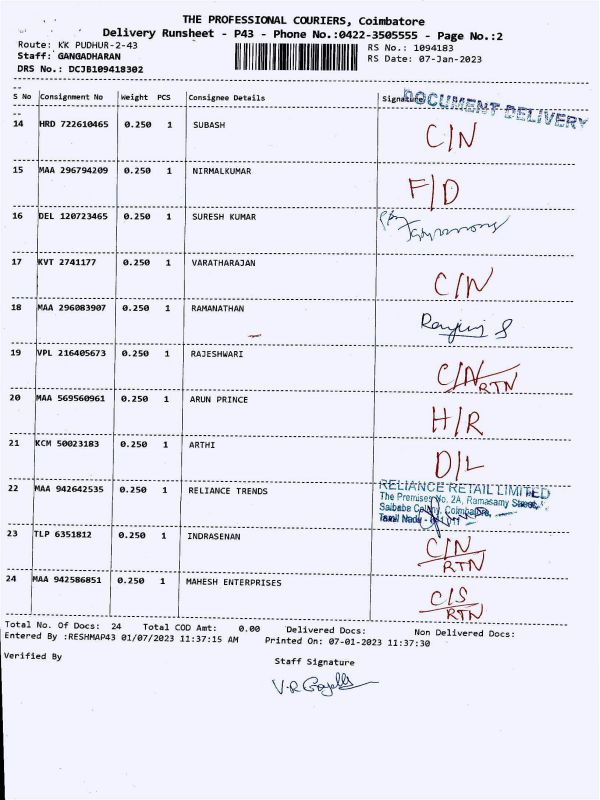 THE PROFESSIONAL COURIERS, Coimbatore
Delivery Runsheet - P43 - Phone No.:0422-3505555 - Page No.:2
Route: KK PUDHUR-2-43 RS No.: 1094183
Staff: GANGADHARAN RS Date: 07-Jan-2023
DRS No.: DCJB109418302
S No Consignment No Weight PCS Consignee Details Signature DOCUMENT DELIVERY
14 HRD 722610465 0.250 1 SUBASH C/N
15 MAA 296794209 0.250 1 NIRMALKUMAR F/D
16 DEL 120723465 0.250 1 SURESH KUMAR
17 KVT 2741177 0.250 1 VARATHARAJAN C/N
18 MAA 296083907 0.250 1 RAMANATHAN
19 VPL 216405673 0.250 1 RAJESHWARI C/N RTN
20 MAA 569560961 0.250 1 ARUN PRINCE H/R
21 KCM 50023183 0.250 1 ARTHI D/L
22 MAA 942642535 0.250 1 RELIANCE TRENDS RELIANCE RETAIL LIMITED
The Premises No. 2A, Ramasamy Street,
Saibaba Colony, Coimbatore,
Tamil Nadu -
23 TLP 6351812 0.250 1 INDRASENAN C/N
RTN
24 MAA 942586851 0.250 1 MAHESH ENTERPRISES C/S
RTN
Total No. Of Docs: 24 Total COD Amt: 0.00 Delivered Docs: Non Delivered Docs:
Entered By :RESHMAP43 01/07/2023 11:37:15 AM Printed On: 07-01-2023 11:37:30
Verified By Staff Signature